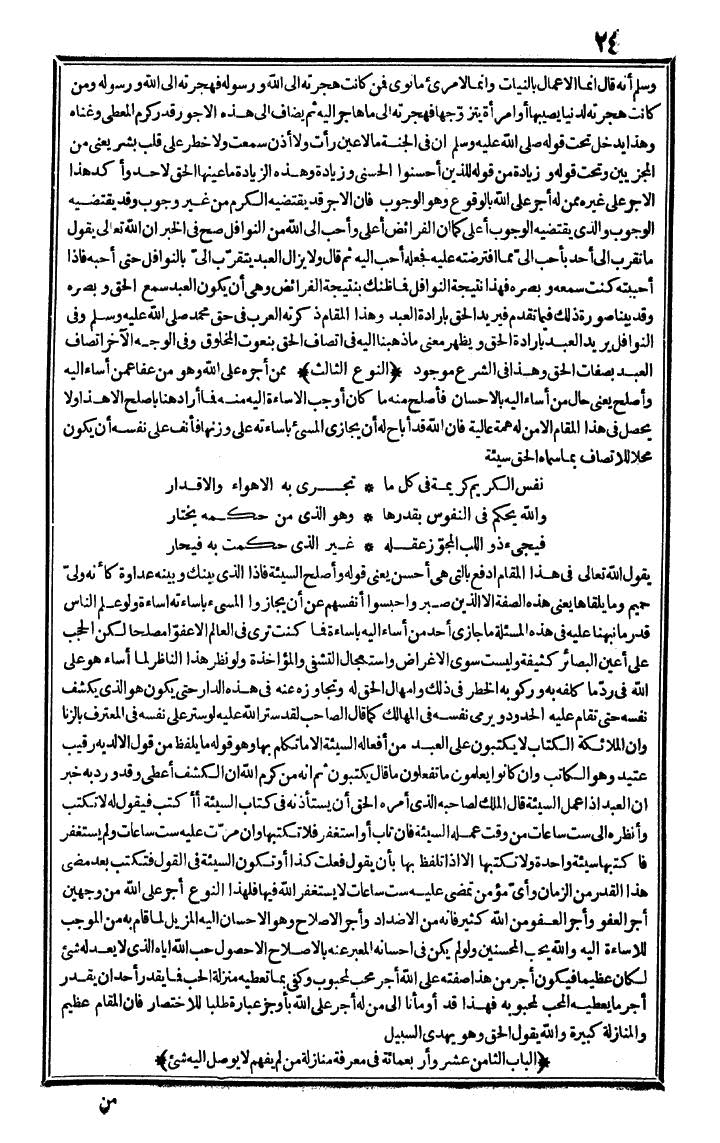 ٢٤
وسلم أنه قال انما الاعمال بالنيات وانما لامرئ مانوى فمن كانت هجرته الى الله ورسوله فهجرته الى الله ورسوله ومن
كانت هجرته لدنيا يصيبها أو امرأة يتزوّجها فهجرته الى ما هاجر اليه ثم يضاف الى هذه الاجور قدر كرم المعطى وغناه
وهذا يدخل تحت قوله صلى الله عليه وسلم ان فى الجنة مالا عين رأت ولا أذن سمعت ولا خطر على قلب بشر يعنى من
المجزيين وتحت قوله وزيادة من قوله للذين أحسنوا الحسنى وزيادة وهذه الزيادة ماعينها الحق لاحد وأكد هذا
الاجر على غيره ممن له أجر على الله بالوقوع وهو الوجوب فان الاجر قد يقتضيه الكرم من غير وجوب وقد يقتضيه
الوجوب والذى يقتضيه الوجوب أعلى كما ان الفرائض أعلى وأحب الى الله من النوافل صح فى الخبر ان الله تعالى يقول
ما تقرب الى أحد بأحب الىّ مما افترضته عليه فجعله أحب اليه ثم قال ولا يزال العبد يتقرّب الىّ بالنوافل حتى أحبه فاذا
أحببته كنت سمعه وبصره فهذا نتيجة النوافل فاظنك بنتيجة الفرائض وهى أن يكون العبد سمع الحق وبصره
وقد بينا صورة ذلك فيما تقدم فيريد الحق بارادة العبد وهذا المقام ذكرته العرب فى حق محمد صلى الله عليه وسلم وفى
النوافل يريد العبد بارادة الحق ويظهر معنى ما ذهبنا اليه فى اتصاف الحق بنعوت المخلوق وفى الوجه الآخر اتصاف
العبد بصفات الحق وهذا فى الشرع موجود ﴿النوع الثالث﴾ ممن أجره على الله وهو من عفا عمن أساء اليه
وأصلح يعنى حال من أساء اليه بالاحسان فأصلح منه ما كان أوجب الاساءة اليه منه فما أراد هنا باصلح الا هذا ولا
يحصل فى هذا المقام الا من له همة عالية فان الله قد أباح له أن يجازى المسئ باساءته على وزنها فأنف على نفسه أن يكون
محلا للاتصاف بما سماه الحق سيئة
نفس الكريم كريمة فى كل ما * تجرى به الاهواء والاقدار
والله يحكم فى النفوس بقدرها * وهو الذى من حكمه يختار
فيجىء ذو اللب المجوّز عقله * غير الذى حكمت به فيحار
يقول الله تعالى فى هذا المقام ادفع بالتى هى أحسن يعنى قوله وأصلح السيئة فاذا الذى بينك وبينه عداوة كأنه ولىّ
حميم وما يلقاها يعنى هذه الصفة الا الذين صبروا حبسوا أنفسهم عن أن يجازوا المسىء باساءته اساءة ولو علم الناس
قدر ما نبهنا عليه فى هذه المسئلة ما جازى أحد من أساء اليه باساءة فما كنت ترى فى العالم الا عفوّا مصلحا لكن الحجب
على أعين البصائر كثيفة وليست سوى الاغراض واستعجال التشفى والمؤاخذة ولو نظر هذا الناظر لما أساء هو على
الله فى ردّ ما كلفه به وركوبه الخطر فى ذلك وامهال الحق له وتجاوزه عنه فى هذه الدار حتى يكون هو الذى يكشف
نفسه حتى تقام عليه الحدود ويرمى نفسه فى المهالك كما قال الصاحب لقد ستر الله عليه لو ستر على نفسه فى المعترف بالزنا
وان الملائكة الكتاب لا يكتبون على العبد من أفعاله السيئة الا ما تكلم بها وهو قوله ما يلفظ من قول الا لديه رقيب
عتيد وهو الكاتب وان كانوا يعلمون ما تفعلون ما قال يكتبون ثم انه من كرم الله ان الكشف أعطى وقد ورد به خبر
ان العبد اذا عمل السيئة قال الملك لصاحبه الذى أمره الحق أن يستأذنه فى كتاب السيئة أأكتب فيقول له لا تكتب
وأنظره الى ست ساعات من وقت عمله السيئة فان تاب أو استغفر فلا تكتبها وان مرّت عليه ست ساعات ولم يستغفر
فاكتبها سيئة واحدة ولا تكتبها الا اذا تلفظ بها بأن يقول فعلت كذا أو تكون السيئة فى القول فتكتب بعد مضى
هذا القدر من الزمان وأىّ مؤمن تمضى عليه ست ساعات لا يستغفر الله فيها فلهذا النوع أجر على الله من وجهين
أجر العفو وأجر العفو من الله كثير فانه من الاضداد وأجر الاصلاح وهو الاحسان اليه المزيل لما قام به من الموجب
للاساءة اليه والله يحب المحسنين ولو لم يكن فى احسانه المعبر عنه بالاصلاح الا حصول حب الله اياه الذى لا يعدله شئ
لكان عظيما فيكون أجر من هذا صفته على الله أجر محب لمحبوب وكفى بما تعطيه منزلة الحب فما يقدر أحد ان يقدر
أجر ما يعطيه المحب لمحبوبه فهذا قد أومأنا الى من له أجر على الله بأوجز عبارة طلبا للاختصار فان المقام عظيم
والمنازلة كبيرة والله يقول الحق وهو يهدى السبيل
﴿الباب الثامن عشر وأربعمائة فى معرفة منازلة من لم يفهم لا يوصل اليه شئ﴾
من